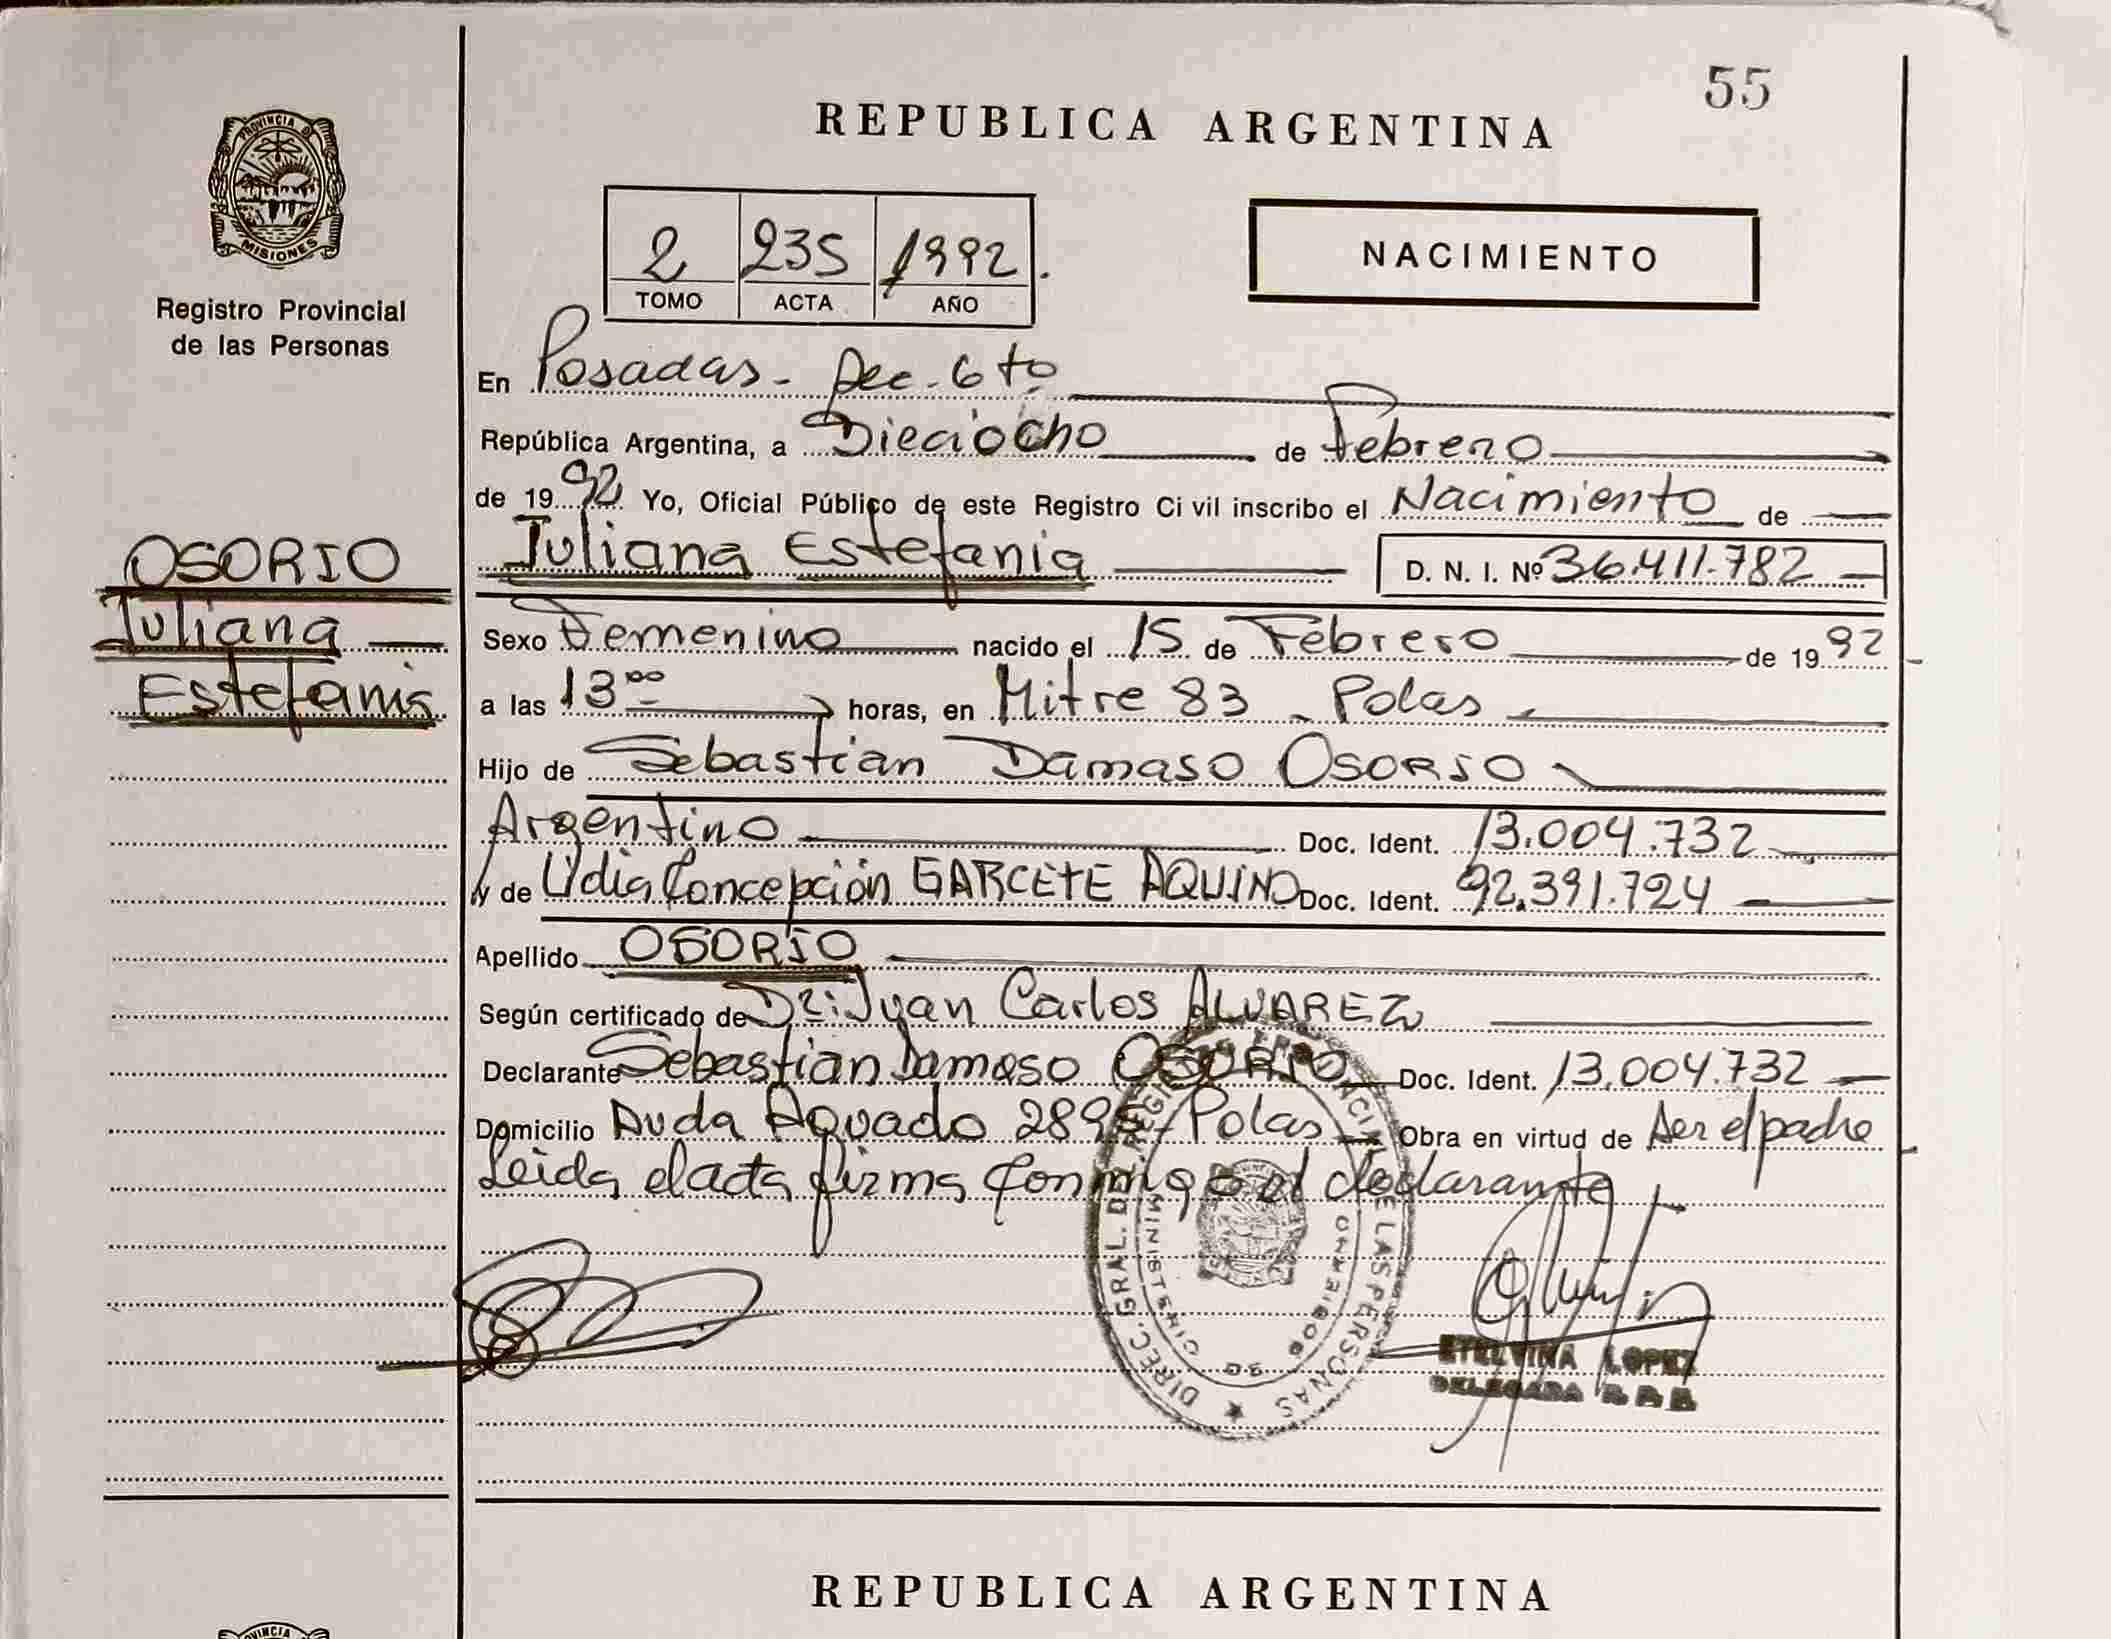 55
REPUBLICA ARGENTINA
PROVINCIA DE
MISIONES
Registro Provincial
de las Personas
2 235 1992.
TOMO ACTA AÑO
NACIMIENTO
En Posadas - Sec. 6to
República Argentina, a Dieciocho de Febrero
de 1992 Yo, Oficial Público de este Registro Civil inscribo el Nacimiento de
Juliana Estefania D. N. I. Nº 36.411.782
OSORIO
Juliana
Estefania
Sexo Femenino nacido el 15 de Febrero de 1992
a las 13⁰⁰ horas, en Mitre 83 - Pdas
Hijo de Sebastian Damaso OSORIO
Argentino Doc. Ident. 13.004.732
y de Lidia Concepción GARCETE AQUINO Doc. Ident. 92.391.724
Apellido OSORIO
Según certificado de Dr: Juan Carlos ALVAREZ
Declarante Sebastian Damaso OSORIO Doc. Ident. 13.004.732
Domicilio Avda Aguado 2895 - Pdas - Obra en virtud de ser el padre
Leida el acta firma conmigo el declarante
DIREC. GRAL. DE LAS PERSONAS
MINISTERIO DE GOBIERNO
ETELVINA LOPEZ
DELEGADA
REPUBLICA ARGENTINA
PROVINCIA